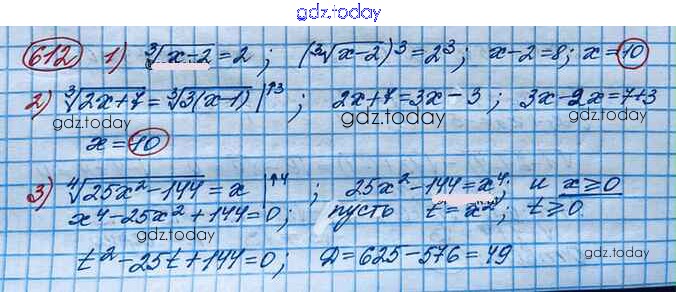 gdz.today
612 1) ∛(x-2) = 2 ; (∛(x-2))³ = 2³ ; x-2=8; x=10
gdz.today
2) ∛(2x+7) = ∛(3(x-1)) |↑3 ; 2x+7=3x-3 ; 3x-2x=7+3
gdz.today gdz.today gdz.today
x=10
3) ∜(25x²-144) = x |↑4 ; 25x²-144=x⁴; и x≥0
x⁴-25x²+144=0; пусть t=x²; t≥0
gdz.today
t²-25t+144=0; Д=625-576=49
gdz.today